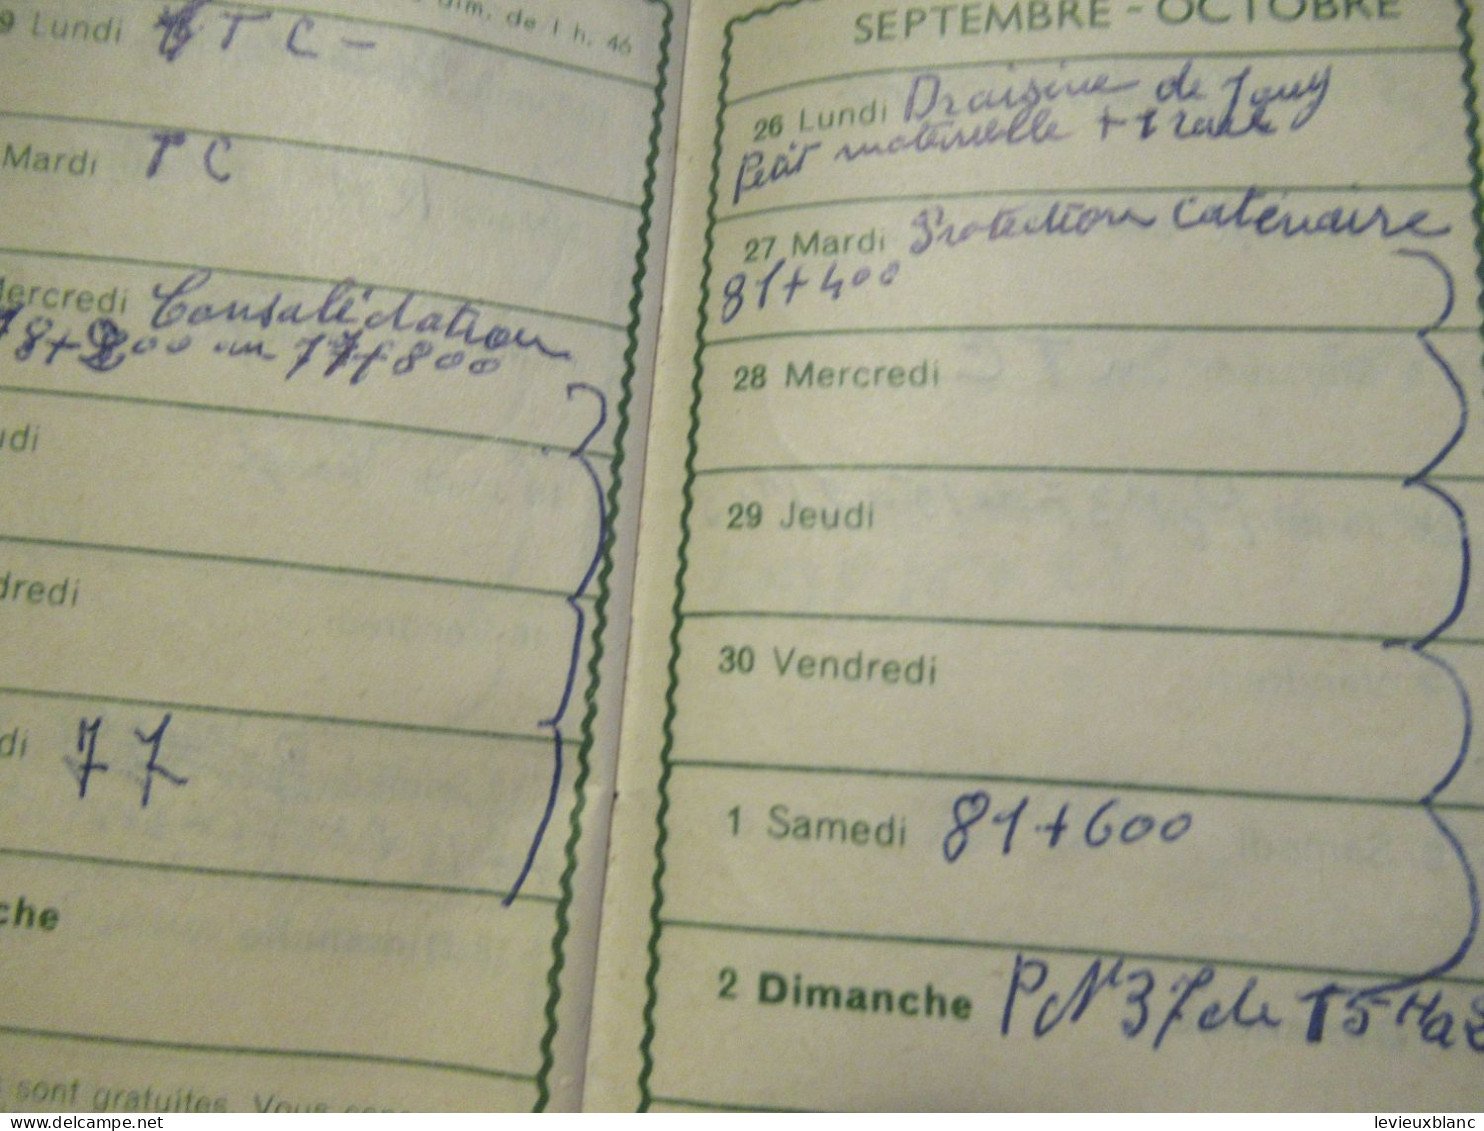 dim. de 1 h. 46
9 Lundi TC -
Mardi TC
Mercredi Consolidation
78+200 au 77+800
udi
dredi
di 77
che
sont gratuites. Vous
SEPTEMBRE - OCTOBRE
26 Lundi Draisine de Jouy
Petit materielle +
27 Mardi Protection Catenaire
81+400
28 Mercredi
29 Jeudi
30 Vendredi
1 Samedi 81+600
2 Dimanche PN 37 de 15H a
levieuxblanc